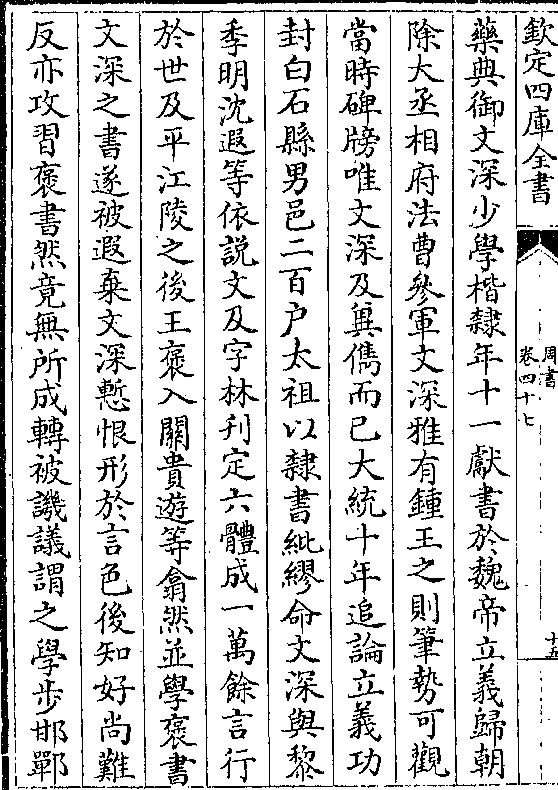 欽定四庫全書
周書
卷四十七
十五
藥典御文深少學楷隸年十一獻書於魏帝立義歸朝
除大丞相府法曹參軍文深雅有鍾王之則筆勢可觀
當時碑牓唯文深及冀儁而已大統十年追論立義功
封白石縣男邑二百户太祖以隸書紕繆命文深與黎
季明沈遐等依説文及字林刋定六體成一萬餘言行
於世及平江陵之後王褒入關貴遊等翕然並學褒書
文深之書遂被遐棄文深慙恨形於言色後知好尚難
反亦攻習褒書然竟無所成轉被譏議謂之學步邯鄲